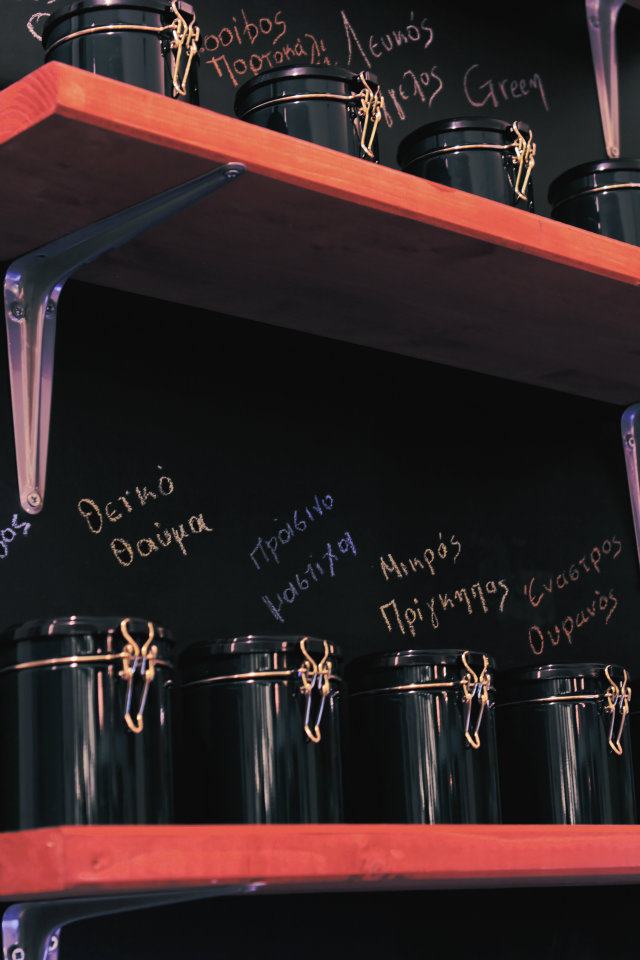 Πορτοκάλι
Λευκός
Green
Θεϊκό
Θαύμα
Πράσινο
μαστίχα
Μικρός
Πρίγκηπας
Έναστρος
Ουρανός